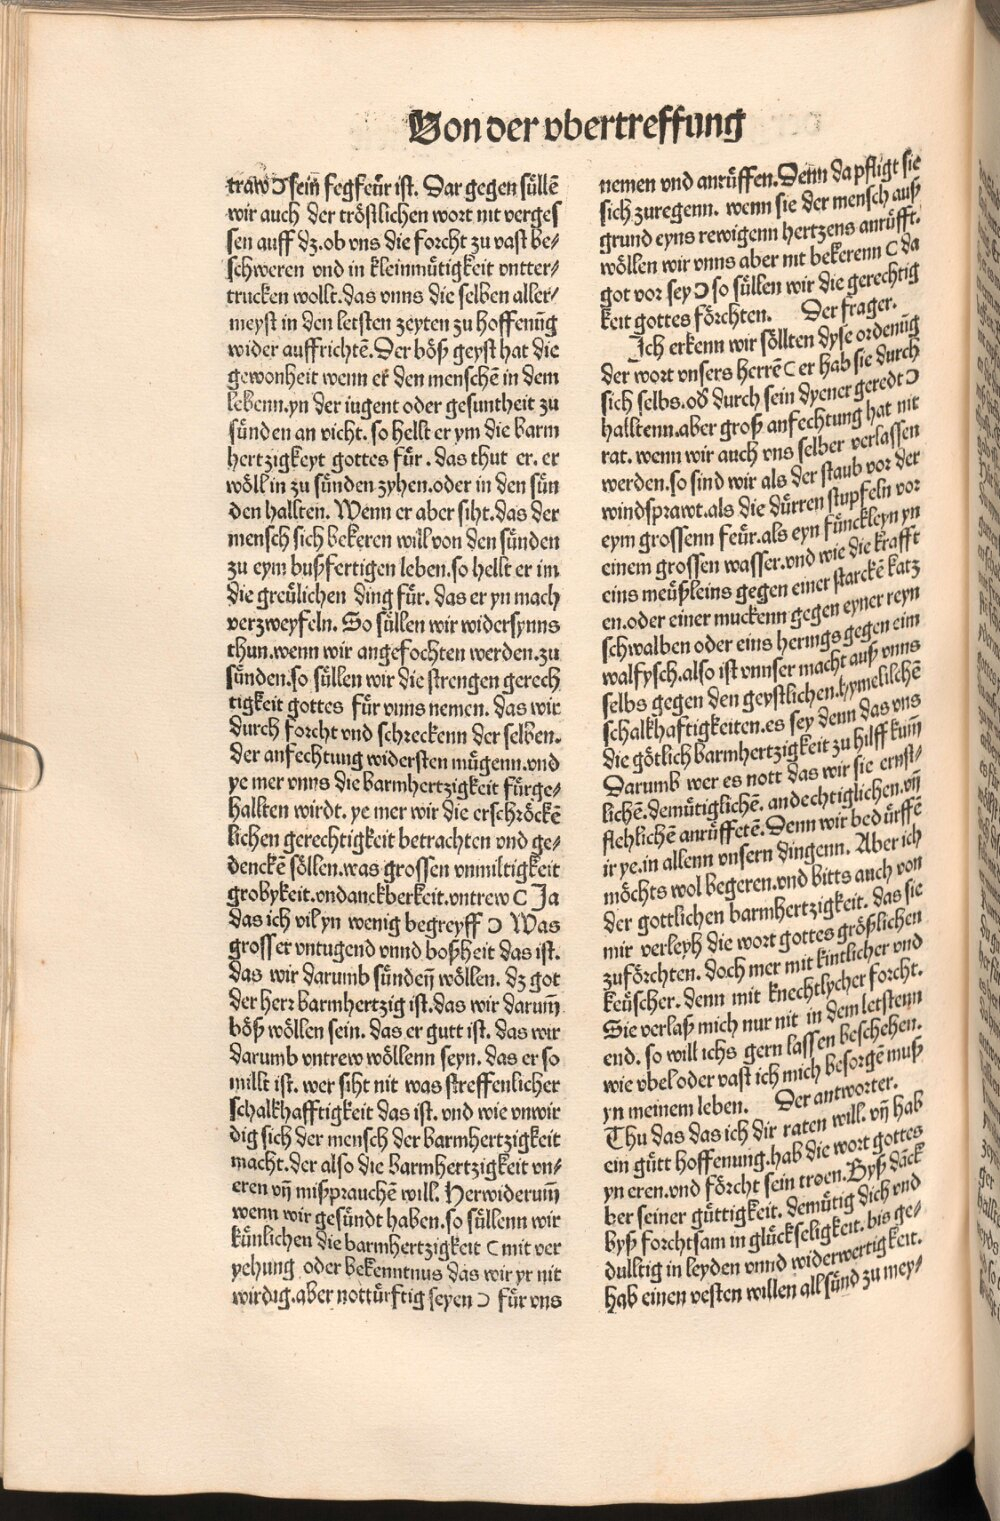 Von der vbertreffung
traw Ↄ sein fegfeür ist. Dar gegen süllē
wir auch der tröstlichen wort nit verges
sen auff dz. ob vns die forcht zu vast be⸗
schweren vnd in kleinmütigkeit vntter⸗
trucken wollt. das vnns die selben aller⸗
meyst in den letsten zeyten zu hoffenūg
wider auffrichtē. Der böß geyst hat die
gewonheit wenn er den menschē in dem
lebenn. yn der iugent oder gesuntheit zu
sünden an richt. so hellt er ym die barm
hertzigkeyt gottes für. das thut er. er
wöll in zu sünden zyhen. oder in den sün
den hallten. Wenn er aber siht. das der
mensch sich bekeren will von den sünden
zu eym bußfertigen leben. so hellt er im
die greülichen ding für. das er yn mach
verzweyfeln. So süllen wir widersynns
thun. wenn wir angefochten werden. zu
sünden. so süllen wir die strengen gerech
tigkeit gottes für vnns nemen. das wir
durch forcht vnd schreckenn der selben.
der anfechtung widersten mügenn. vnd
ye mer vnns die barmhertzigkeit fürge⸗
hallten wirdt. ye mer wir die erschröckē
lichen gerechtigkeit betrachten vnd ge⸗
denckē söllen. was grossen vnmiltigkeit
grobykeit. vndanckberkeit. vntrew C Ja
das ich vil yn wenig begreyff Ↄ Was
grosser vntugend vnnd boßheit das ist.
das wir darumb sünden wöllen. dz got
der herr barmhertzig ist. das wir darum̄
böß wöllen sein. das er gutt ist. das wir
darumb vntrew wöllenn seyn. das er so
millt ist. wer siht nit was streffenlicher
schalkhafftigkeit das ist. vnd wie vnwir
dig sich der mensch der barmhertzigkeit
macht. der also die barmhertzigkeit vn⸗
eren vn̄ mißprauchē will. Herwiderum̄
wenn wir gesündt haben. so süllenn wir
künlichen die barmhertzigkeit C mit ver
yehung oder bekenntnus das wir yr nit
wirdig. aber nottürftig seyen Ↄ für vns
nemen vnd anrüffen. Denn da pfligt sie
sich zuregenn. wenn sie der mensch auß
grund eyns rewigenn hertzens anrüfft.
wöllen wir vnns aber nit bekerenn C da
got vor sey Ↄ so süllen wir die gerechtig
keit gottes förchten. Der frager.
Ich erkenn wir söllten dyse ordenūg
der wort vnsers herrē C er hab sie durch
sich selbs. od̄ durch sein dyener geredt Ↄ
halltenn. aber groß anfechtung hat nit
rat. wenn wir auch vns selber verlassen
werden. so sind wir als der staub vor der
windsprawt. als die dürren stupfeln vor
eym grossenn feür. als eyn fünckleyn yn
einem grossen wasser. vnd wie die krafft
eins meüßleins gegen einer starckē katz
en. oder einer muckenn gegen eyner reyn
schwalben oder eins herings gegen eim
walfysch. also ist vnnser macht auß vnns
selbs gegen den geystlichen. hymelischē
schalkhaftigkeiten. es sey denn das vns
die götlich barmhertzigkeit zu hilff kum̄
Darumb wer es nott das wir sie ernst⸗
lichē. demütiglichē. andechtiglichen. vn̄
flehlichē anrüffetē. Denn wir bedürffē
ir ye. in allenn vnsern dingenn. Aber ich
möchts wol begeren. vnd bitts auch von
der gottlichen barmhertzigkeit. das sie
mir verleyh die wort gottes größlichen
zuförchten. doch mer mit kintlicher vnd
keüscher. denn mit knechtlycher forcht.
Sie verlaß mich nur nit in dem letstenn
end. so will ichs gern lassen beschehen.
wie vbel oder vast ich mich besorgē muß
yn meinem leben. Der antworter.
Thu das das ich dir raten will. vn̄ hab
ein gütt hoffenung. hab die wort gottes
yn eren. vnd förcht sein troen. Byß dāck
ber seiner güttigkeit. demütig dich vnd
byß forchtsam in glückseligkeit. bis ge⸗
dulltig in leyden vnnd widerwertigkeit.
hab einen vesten willen all sünd zu mey⸗